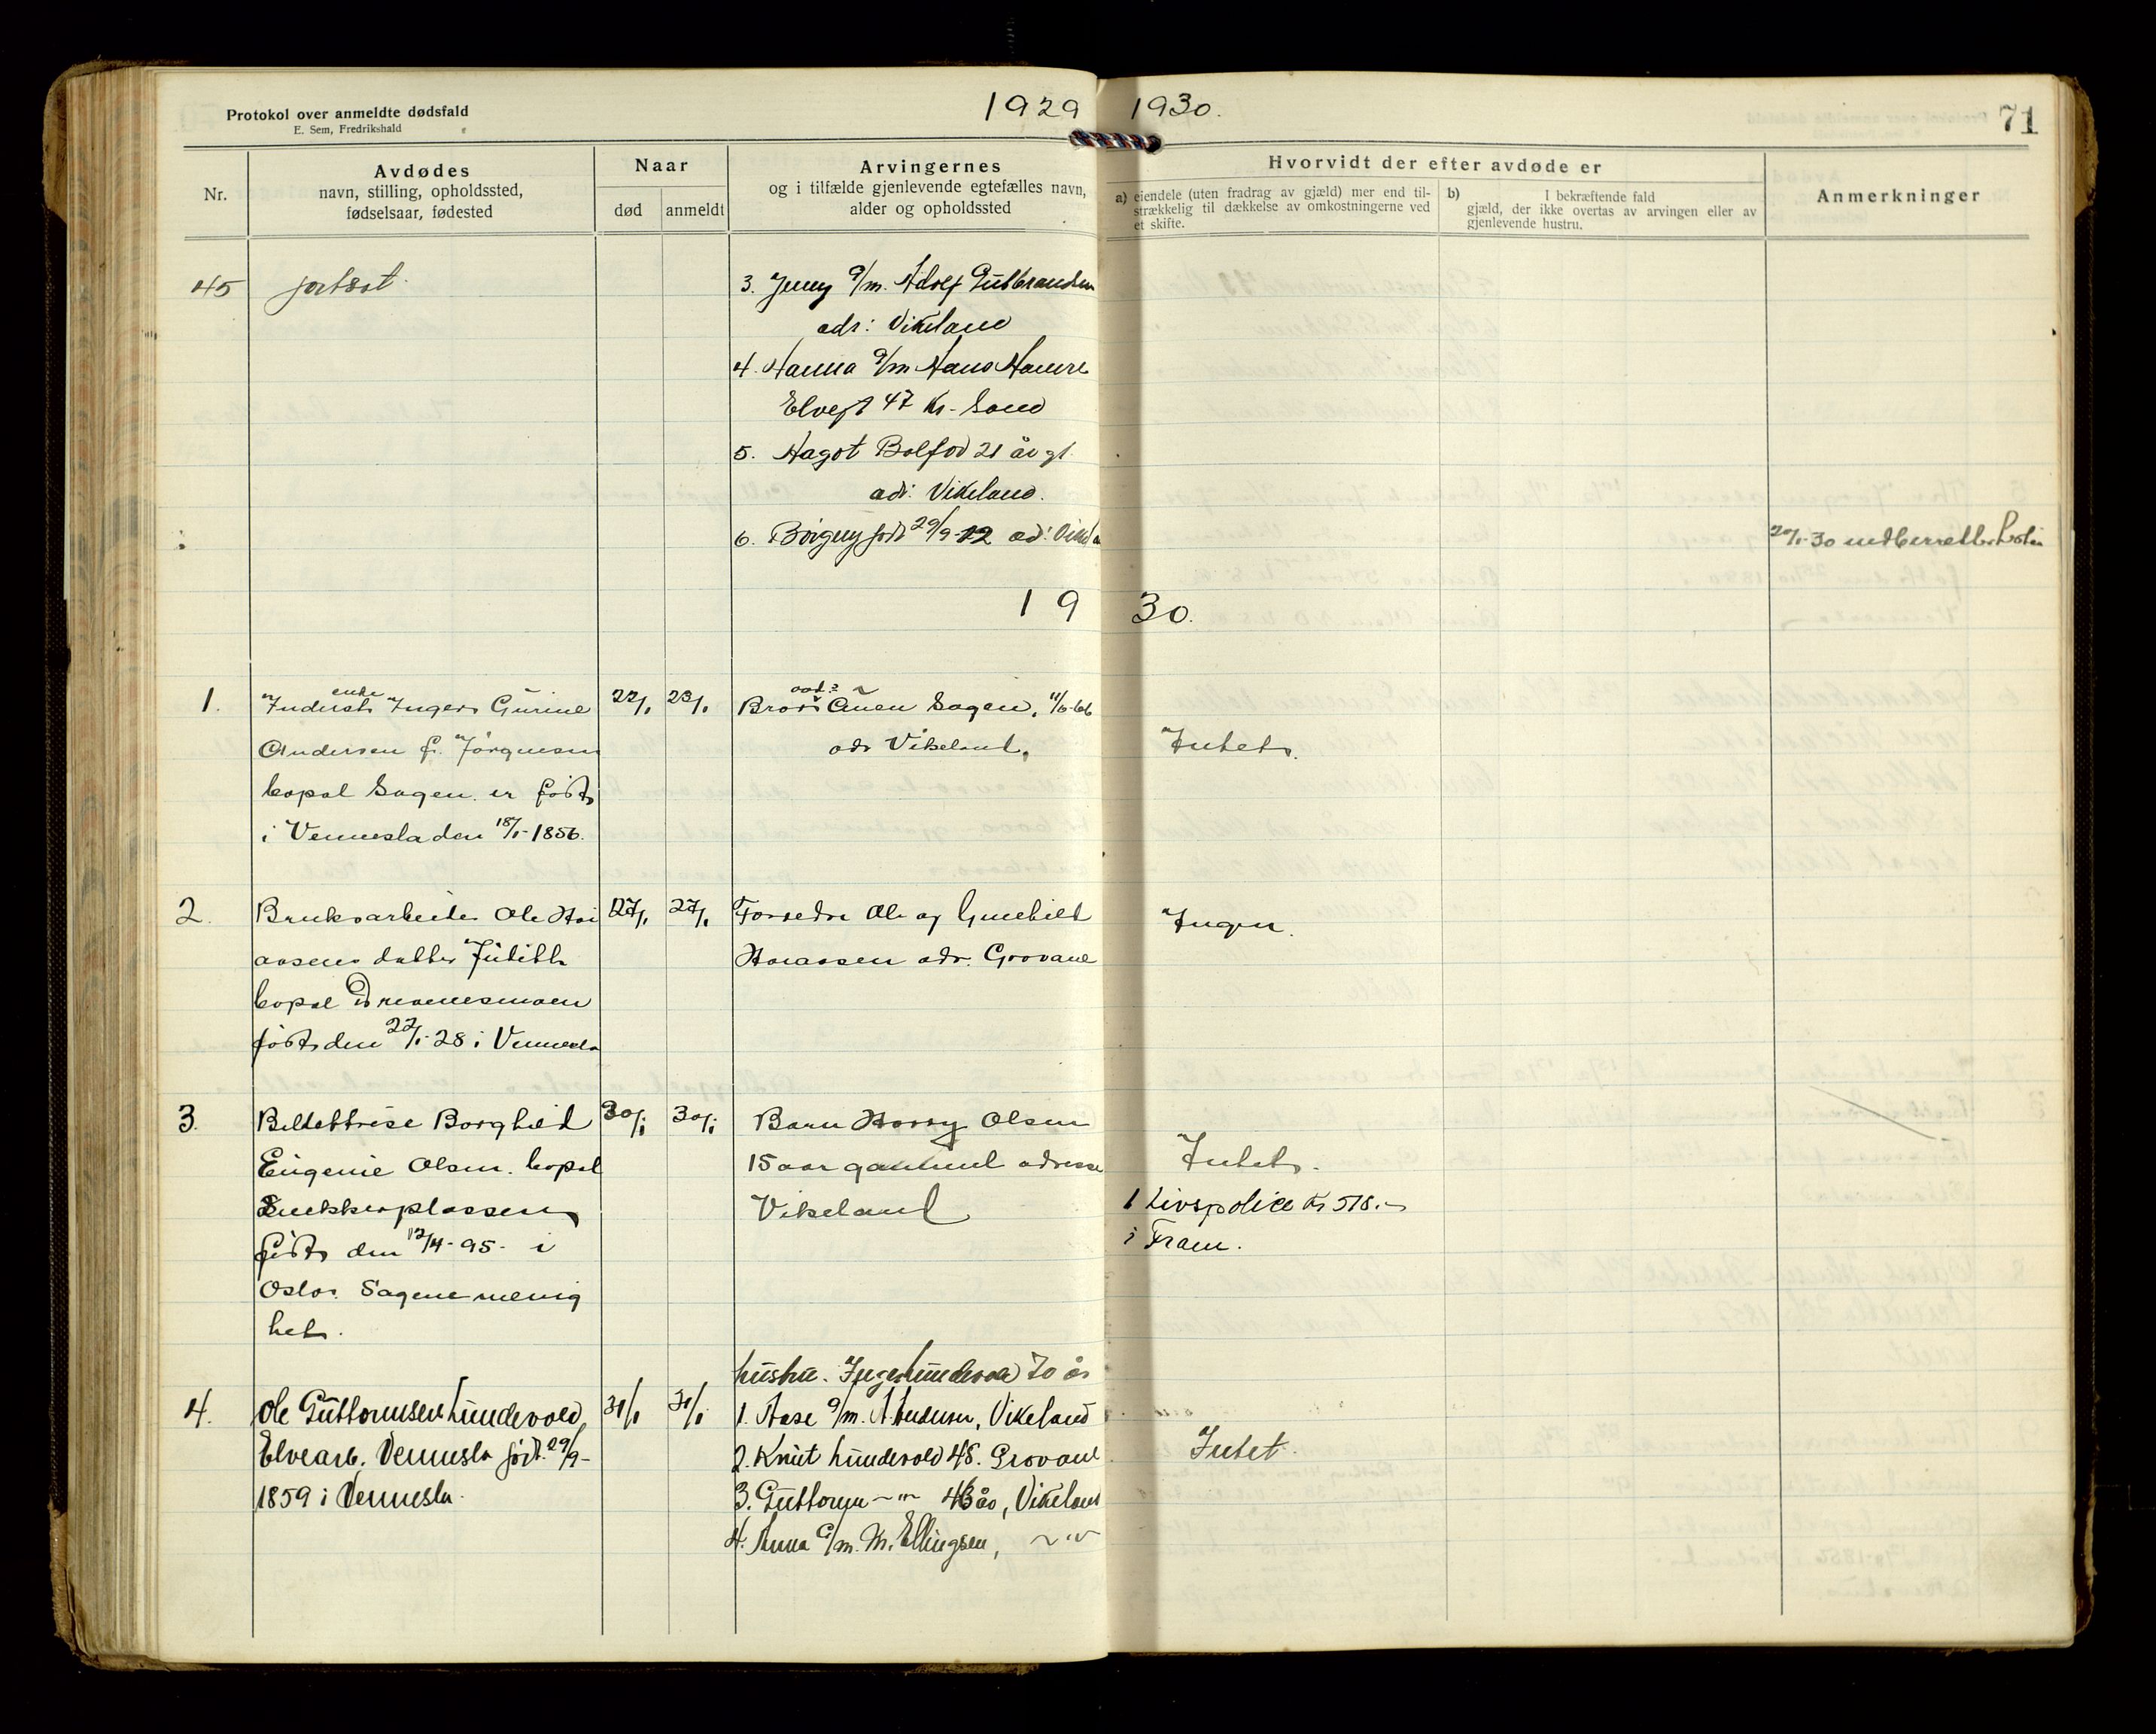 Protokol over anmeldte dødsfald
E. Sem, Fredrikshald
1929 1930.
71
Nr.
Avdødes
navn, stilling, opholdssted,
fødselsaar, fødested
Naar
død
anmeldt
Arvingernes
og i tilfælde gjenlevende egtefælles navn,
alder og opholdssted
Hvorvidt der efter avdøde er
a) eiendele (uten fradrag av gjæld) mer end til-
strækkelig til dækkelse av omkostningerne ved
et skifte.
b) I bekræftende fald
gjæld, der ikke overtas av arvingen eller av
gjenlevende hustru.
Anmerkninger
45 fortsat.
3. Jenny g/m. Adolf Gutbrandsen
adr: Vikeland
4. Hanna g/m Hans Hamre
Elvegt 47 Kr. Sand
5. Hagot 21 år gl.
adr: Vikeland.
6. Borgny født 29/9-12 ad:
20/1-30 indberettet
19 30.
1. Inderst enke Inger Gurine
Andersen f. Jørgensen
bopæl Sagen er født
i Vennesla den 18/1-1856.
22/1 23/1
Bror Sagen, 11/6-66
adr Vikeland,
Intet.
2. Bruksarbeider Ole Hor
aasens datter Judith
bopæl
født den 27/1-28 i Vennesla
27/1 27/1
Forædre Ole og Gunhild
Horaasen adr. Grovane
Ingen.
3. Borghild
Eugenie Olsen. bopæl
født den 12/4-95- i
Oslo. Sagene menig
het.
30/1 30/1
Barn Harry Olsen
15 aar gammel adresse
Vikeland
Intet.
1 Livspolice Kr 518.-
i Fram.
4. Ole Guttormsen Hundevold,
Elvearb. Vennesla født 29/9-
1859 i Vennesla.
31/1 31/1
hustru. Inger Hundevold 70 år
1. Aase g/m. A. Andersen, Vikeland
2. Knut Hundevold 48. Grovane
3. Guttorm —"— 46 år, Vikeland
4. Anna g/m. M. Ellingsen, —"—
Intet.